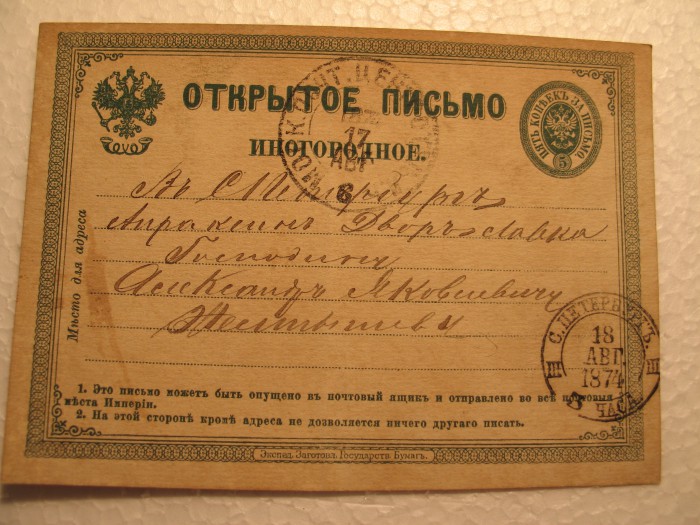 ОТКРЫТОЕ ПИСЬМО
ПЯТЬ КОПѢЕКЪ ЗА ПИСЬМО
5
ИНОГОРОДНОЕ.
17
АВГ
Мѣсто для адреса
Въ С Петербургъ
Апраксинъ Дворъ Лавка
Господину
Александръ Яковлевичу
С. ПЕТЕРБУРГЪ.
18
АВГ
1874
III
III
ЧАСА
1. Это письмо можетъ быть опущено въ почтовый ящикъ и отправлено во всѣ почтовыя
мѣста Имперіи.
2. На этой сторонѣ кромѣ адреса не дозволяется ничего другаго писать.
Экспед. Заготовл. Государств. Бумагъ.